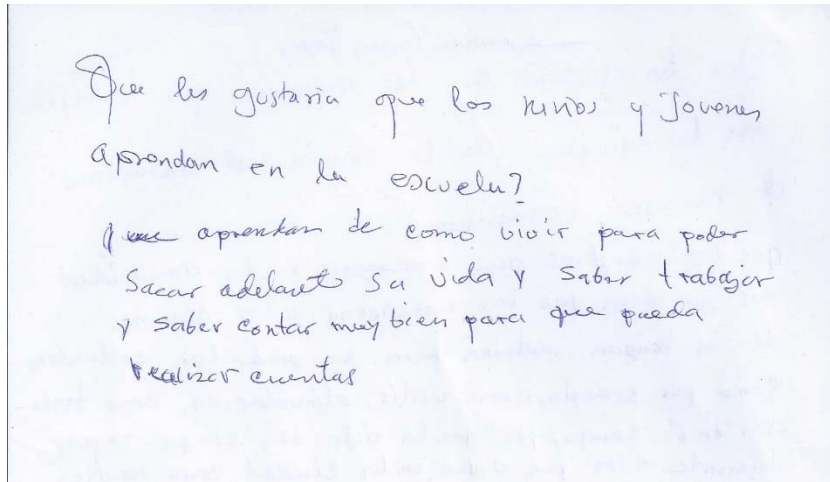 Que les gustaria que los niños y Jovenes
aprendan en la escuela?
Que aprendan de como vivir para poder
Sacar adelante su vida y saber trabajar
y saber contar muy bien para que pueda
realizar cuentas